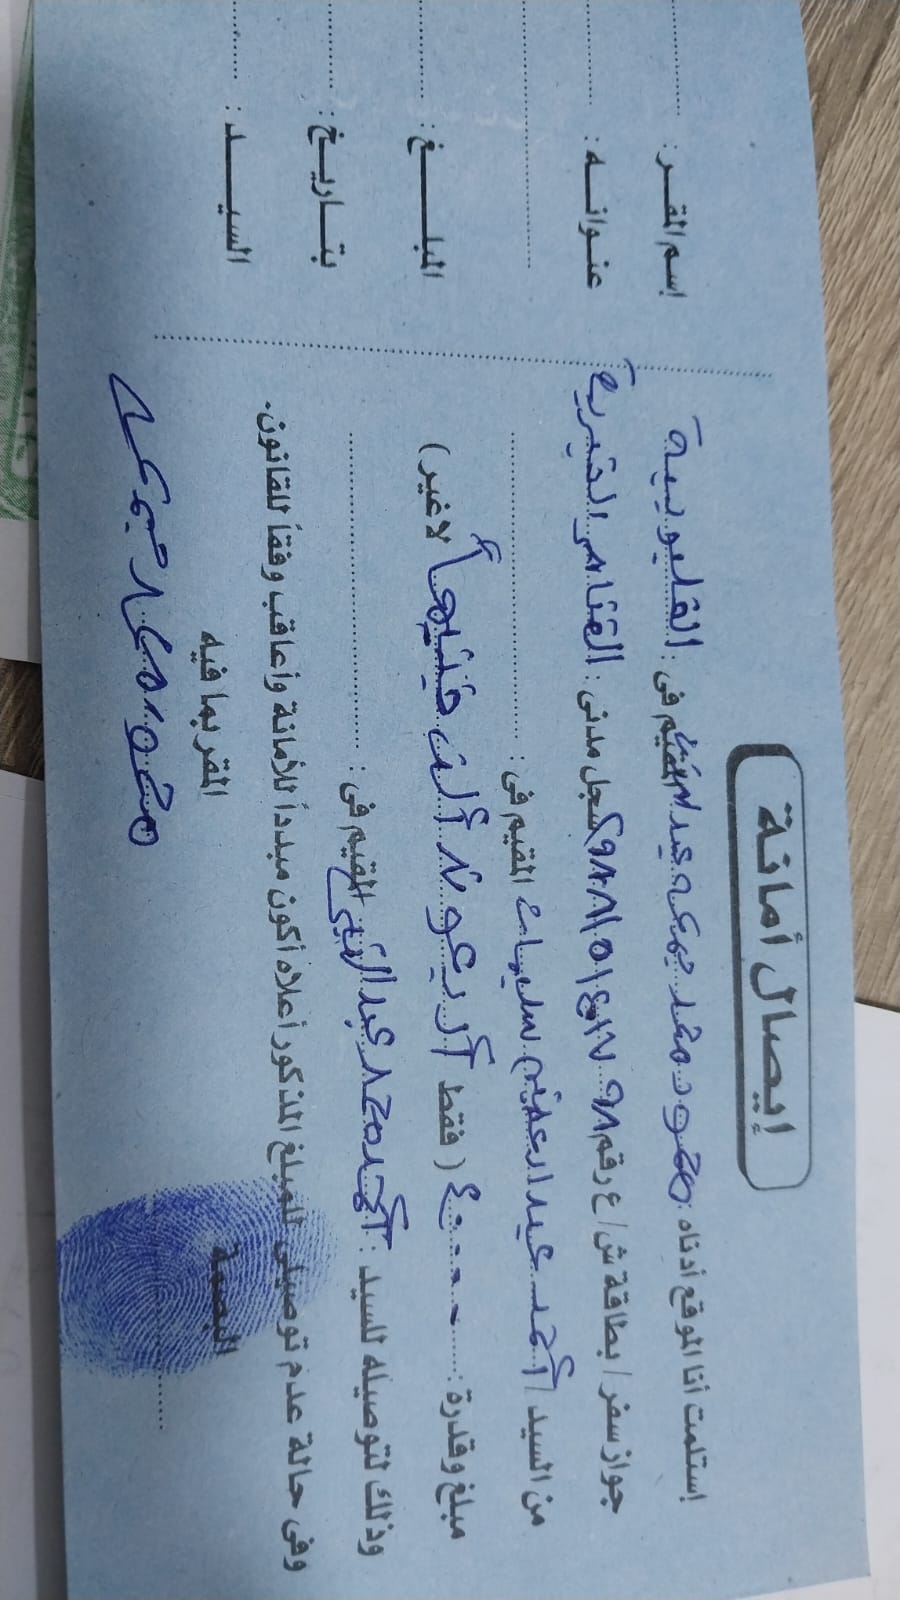 إيصال أمانة
إستلمت أنا الموقع أدناه : محمود محمد جمعه عبد المقيم فى : القليوبية
جواز سفر / بطاقة ش / ع رقم سجل مدنى : القناطر الخيرية
من السيد / أحمد عبد العظيم سليمان المقيم فى :
مبلغ وقدرة : ٤٠٠٠٠ ( فقط أربعون ألف جنيهاً لا غير )
وذلك لتوصيله للسيد : أحمد محمد عبد النبى المقيم فى :
وفى حالة عدم توصيلى للمبلغ المذكور أعلاه أكون مبدداً للأمانة وأعاقب وفقاً للقانون.
البصمة المقر بما فيه
محمود محمد جمعه
إسم المقر :
عنوانه :
المبلغ :
بتاريخ :
السيد :